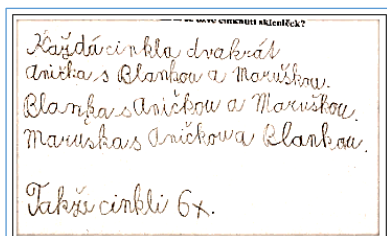 cinknutí skleniček?
Každá cinkla dvakrát
Anička s Blankou a Maruškou.
Blanka s Aničkou a Maruškou.
Maruška s Aničkou a Blankou.
Takže cinkli 6x.